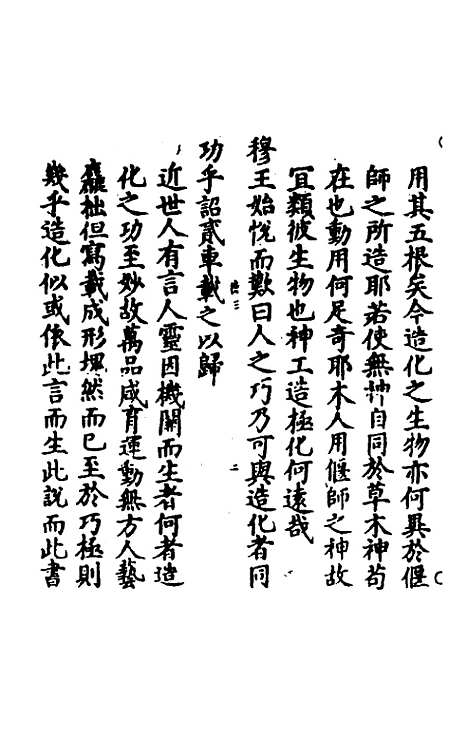 用其五根矣今造化之生物亦何異於偃
師之所造耶若使無神自同於草木神苟
在也動用何足奇耶木人用偃師之神故
宜類彼生物也神工造極化何遠哉
穆王始悅而歎曰人之巧乃可與造化者同
功乎詔貳車載之以歸
近世人有言人靈因機關而生者何者造
化之功至妙故萬品咸育運動無方人藝
麤拙但寫載成形塊然而已至於巧極則
幾乎造化似或依此言而生此說而此書